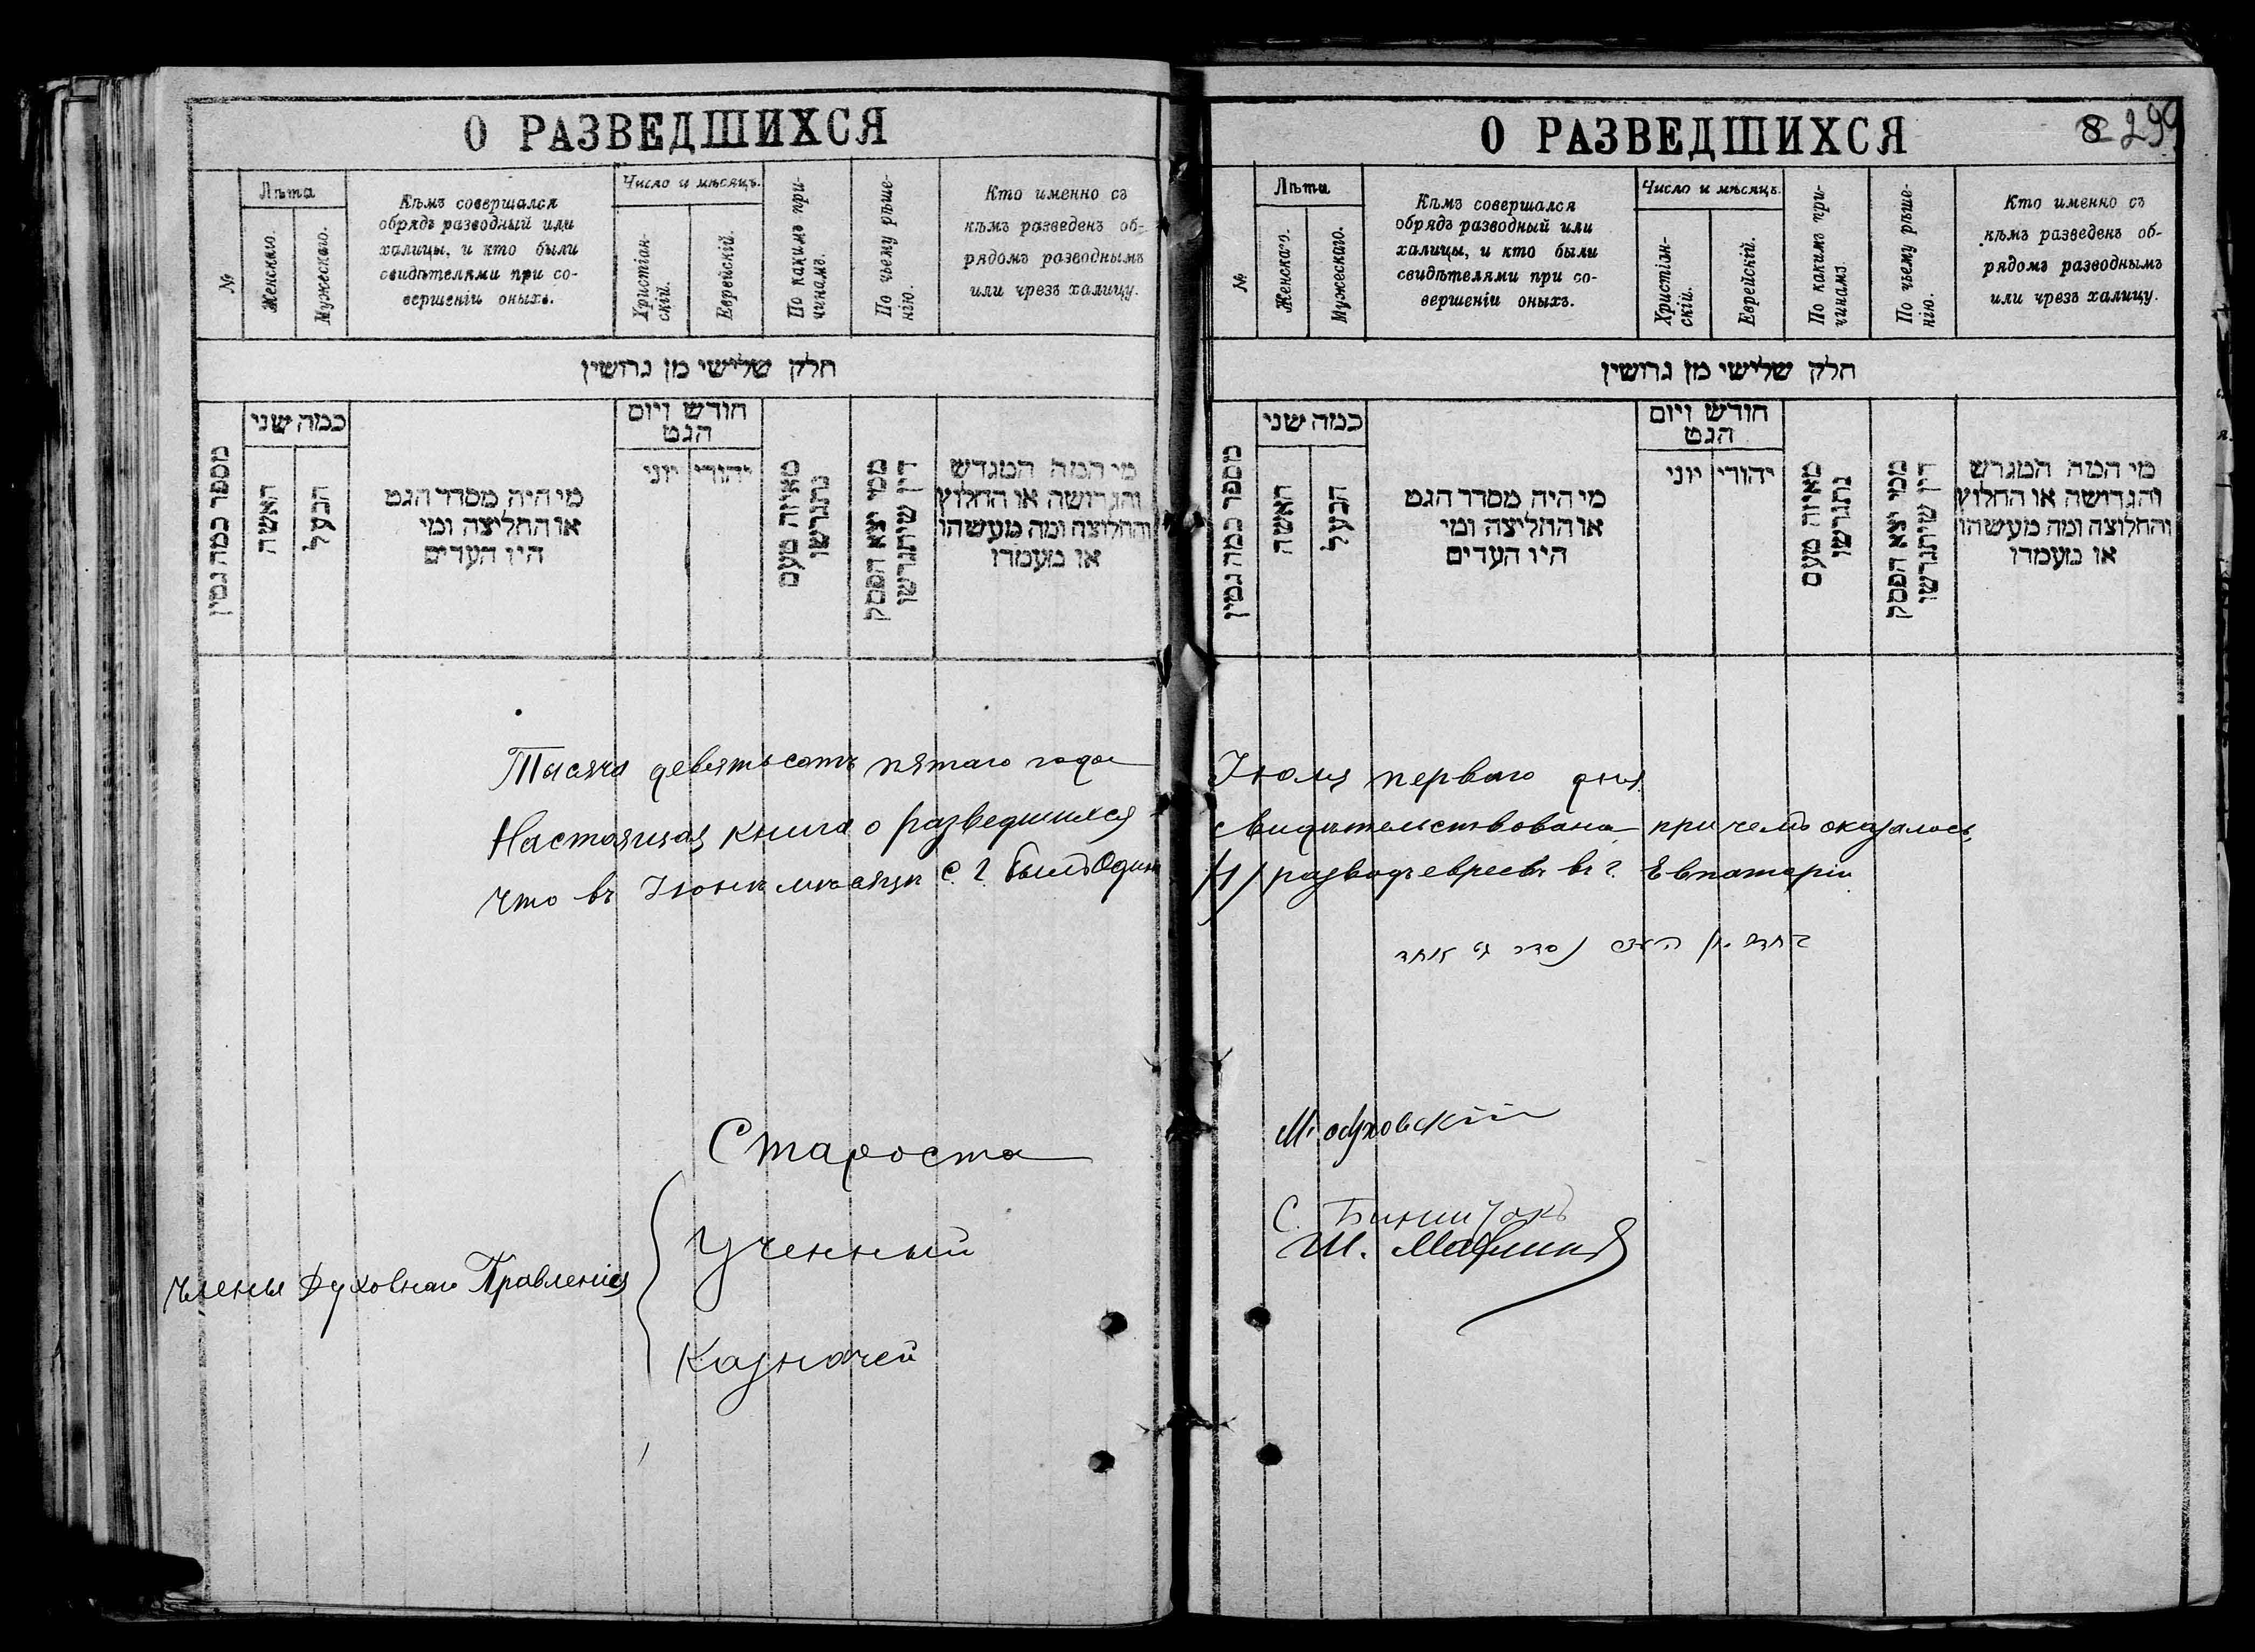 О РАЗВЕДШИХСЯ
№
Лѣта
Женскаго.
Мужескаго.
Кѣмъ совершался
обрядъ разводный или
халицы, и кто были
свидѣтелями при со-
вершеніи оныхъ.
Число и мѣсяцъ.
Христіан-
скій.
Еврейскій.
По какимъ при-
чинамъ.
По чьему рѣше-
нію.
Кто именно съ
кѣмъ разведенъ об-
рядомъ разводнымъ
или чрезъ халицу.
חלק שלישי מן גרושין
מספר כמה גטין
כמה שני
האשה
הבעל
מי היה מסדר הגט
או החליצה ומי
היו העדים
חודש ויום
הגט
יהודי
יוני
מאיזה טעם
נתגרשו
ממי יצא הפסק
דין שיתגרשו
מי המה המגרש
והגרושה או החלוץ
והחלוצה ומה מעשהו
או מעמדו
Тысяча девятьсотъ пятаго года
Настоящая книга о разведшихся
что въ Іюнѣ мѣсяцѣ с. г. былъ Одинъ
Староста
Члены Духовнаго Правленія
Ученный
Казначей
О РАЗВЕДШИХСЯ
8 299
№
Лѣта
Женскаго.
Мужескаго.
Кѣмъ совершался
обрядъ разводный или
халицы, и кто были
свидѣтелями при со-
вершеніи оныхъ.
Число и мѣсяцъ.
Христіан-
скій.
Еврейскій.
По какимъ при-
чинамъ.
По чьему рѣше-
нію.
Кто именно съ
кѣмъ разведенъ об-
рядомъ разводнымъ
или чрезъ халицу.
חלק שלישי מן גרושין
מספר כמה גטין
כמה שני
האשה
הבעל
מי היה מסדר הגט
או החליצה ומי
היו העדים
חודש ויום
הגט
יהודי
יוני
מאיזה טעם
נתגרשו
ממי יצא הפסק
דין שיתגרשו
מי המה המגרש
והגרושה או החלוץ
והחלוצה ומה מעשהו
או מעמדו
Іюля перваго дня
свидѣтельствована при чемъ оказалось,
/1/ разводъ евреевъ в г. Евпаторіи
С.
Ш.